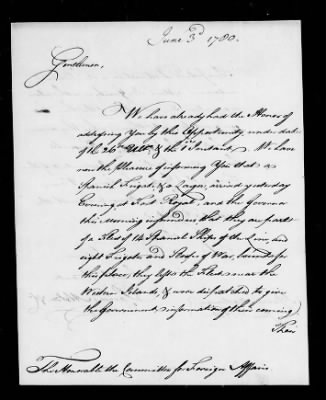 June 3d 1780.
Gentlemen,
We have already had the Honor of
addressing You by this Opportunity, under date
of the 26th Ulto. & the 1st Instant, We have
now the pleasure of informing You that a
Spanish Frigate & a Lugar, arrived yesterday
Evening at Fort Royal, and the Governor
this morning informed us that they are part
of a Fleet of 14 Spanish Ships of the Line, and
eight Frigates and Sloops of War, bound for
this place, they left the Fleet near the
Western Islands, & were dispatched to give
the Government information of their coming
Their
The Honorable the Committee for Foreign Affairs